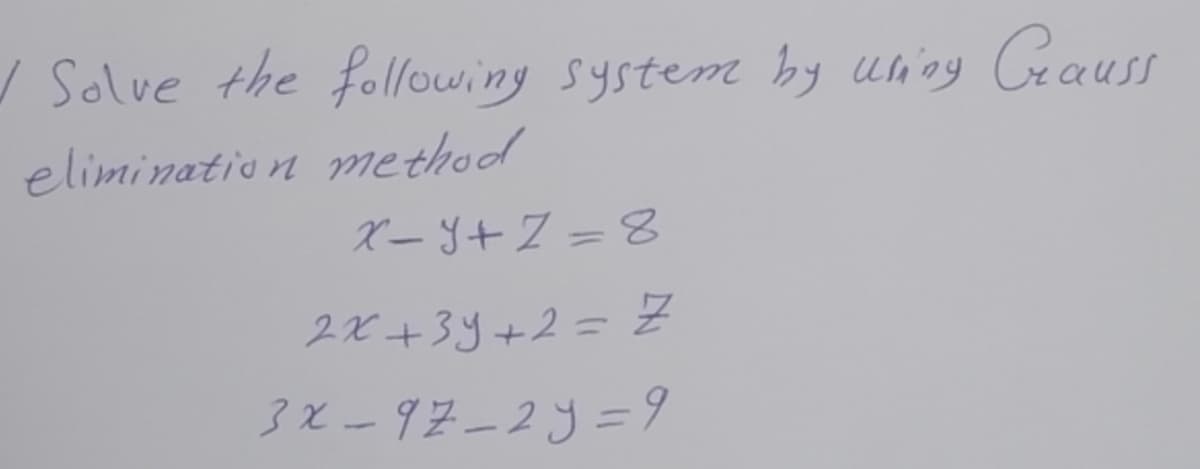 / Solve the following system by using Gauss
elimination method
x - y + z = 8
2x + 3y + 2 = z
3x - 9z - 2y = 9